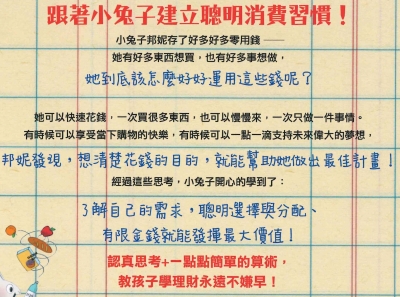 跟著小兔子建立聰明消費習慣！
小兔子邦妮存了好多好多零用錢——
她有好多東西想買，也有好多事想做，
她到底該怎麼好好運用這些錢呢？
她可以快速花錢，一次買很多東西，也可以慢慢來，一次只做一件事情。
有時候可以享受當下購物的快樂，有時候可以一點一滴支持未來偉大的夢想，
邦妮發現，想清楚花錢的目的，就能幫助她做出最佳計畫！
經過這些思考，小兔子開心的學到了：
了解自己的需求，聰明選擇與分配、
有限金錢就能發揮最大價值！
認真思考+一點點簡單的算術，
教孩子學理財永遠不嫌早！